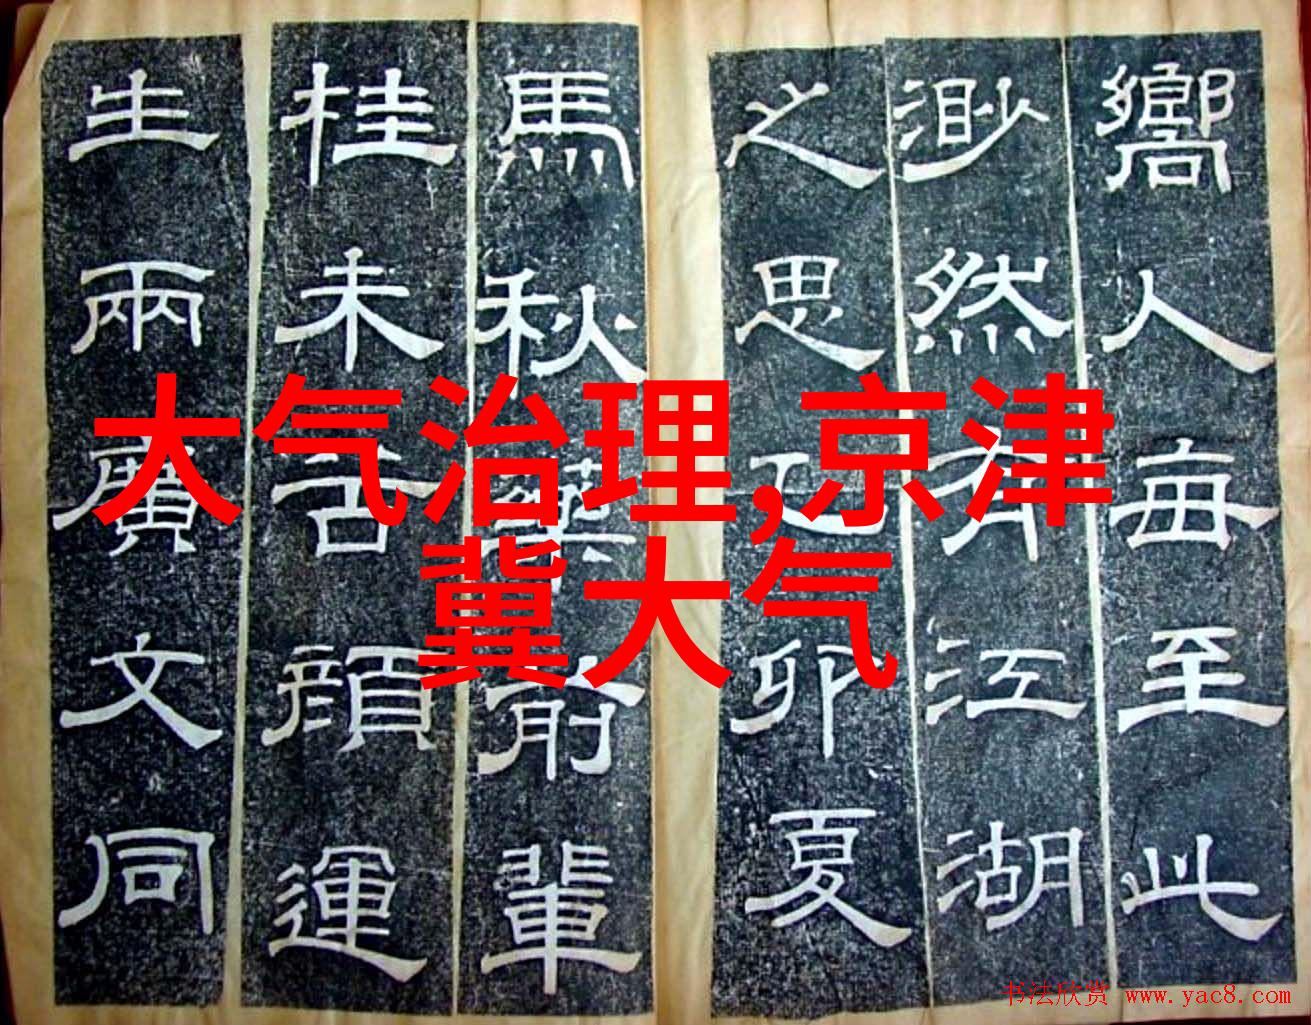 嚮人每至此
渺然有江湖
之思卯夏
馬秋藥前輩
桂未谷顏運
生兩廣文同
大气治理,京津
冀大气
书法欣赏 www.yac8.com